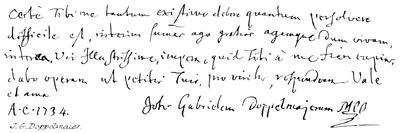 Certè Tibi me tantum existimo debere quantum persolvere
difficile est, interim summas ago gratias agamque dum vivam,
interea, Vir Illustrissime, impera, quid Tibi à me fieri cupias,
dabo operam ut petitis Tuis, pro virili, respondeam Vale
et ama
A. C. 1734. Joh: Gabrielem Doppelmajerum
J. G. Doppelmaier.